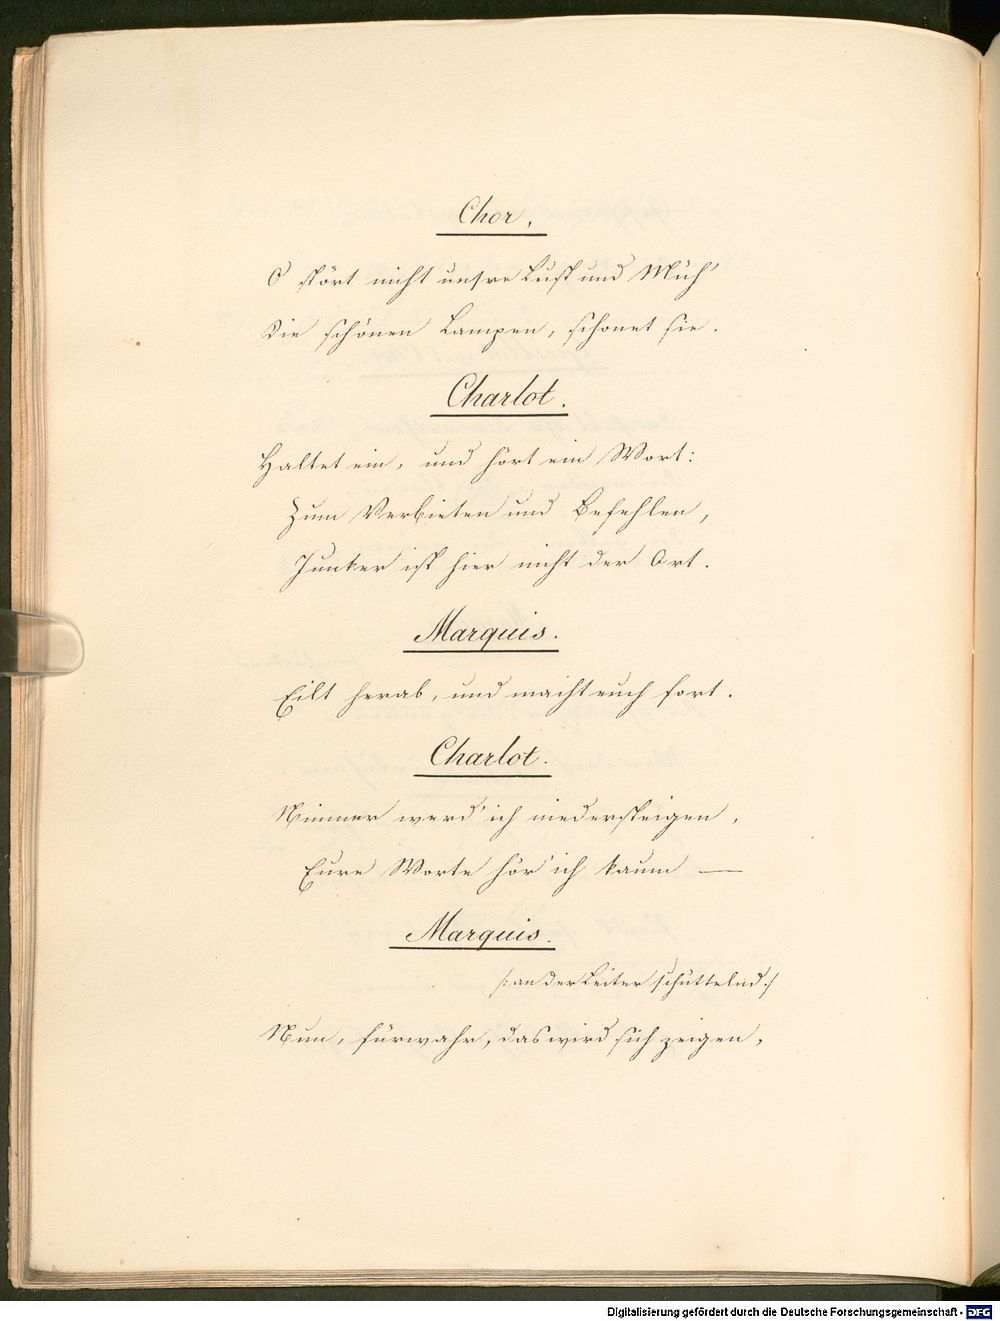 Chor.
O stört nicht unsre Lust und Müh'
Die schönen Lampen, schonet sie.
Charlot.
Haltet ein, und hört ein Wort:
Zum Verbieten und Befehlen,
Junker ist hier nicht der Ort.
Marquis.
Eilt herab, und macht euch fort.
Charlot.
Nimmer werd' ich niedersteigen,
Eure Worte hör' ich kaum —
Marquis.
/: an der Leiter schüttelnd :/
Nun, fürwahr, das wird sich zeigen,
Digitalisierung gefördert durch die Deutsche Forschungsgemeinschaft - DFG